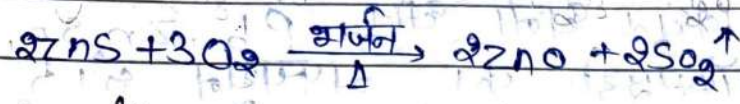 2ZnS + 3O₂ भर्जन→Δ 2ZnO + 2SO₂↑